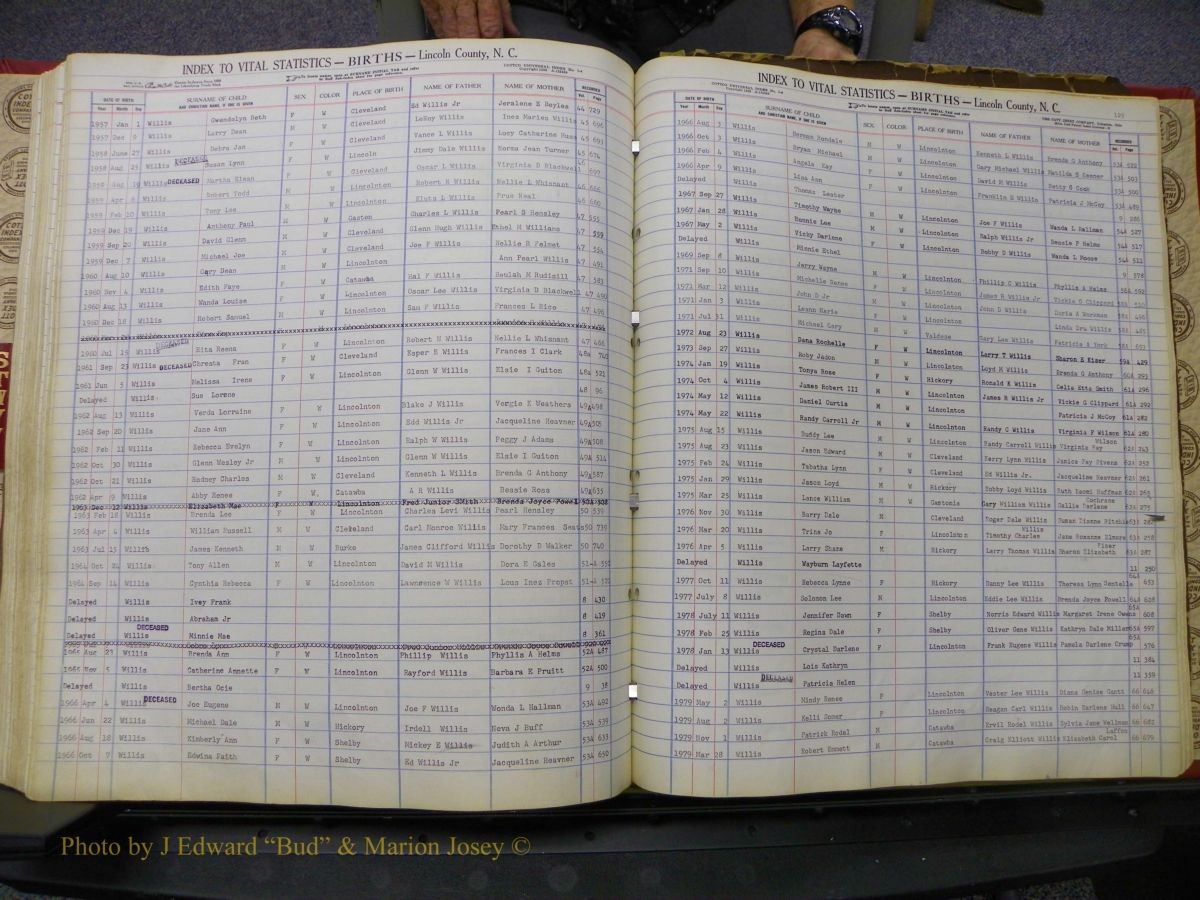 INDEX TO VITAL STATISTICS — BIRTHS — Lincoln County, N. C.
DATE OF BIRTH SURNAME OF CHILD SEX COLOR PLACE OF BIRTH NAME OF FATHER NAME OF MOTHER RECORDED
Year Month Day AND CHRISTIAN NAME, IF ONE IS GIVEN Vol. Page
1957 Jan 1 Willis Gwendolyn Beth F W Cleveland Ed Willis Jr Jeralene E Bayles 44 729
1957 Dec 9 Willis Larry Dean M W Cleveland LeRoy Willis Inez Maries Willis 45 696
1958 June 27 Willis Debra Jan F W Cleveland Vance L Willis Lucy Catherine Huss 45 693
1958 Aug 23 Willis DECEASED Susan Lynn F W Lincoln Jimmy Dale Willis Norma Jean Turner 45 674
1958 Aug 19 Willis DECEASED Martha Elean F W Cleveland Oscar L Willis Virginia D Blackwell 46 697
1959 Apr 8 Willis Robert Todd M W Lincolnton Robert H Willis Nellie L Whisnant 46 666
1959 Feb 20 Willis Tony Lee M W Lincolnton Klutz L Willis Prue Neal 46 660
1959 Dec 19 Willis Anthony Paul M W Gaston Charles L Willis Pearl S Hensley 47 555
1959 Sep 20 Willis David Glenn M W Cleveland Glenn Hugh Willis Ethel M Williams 47 559
1959 Dec 7 Willis Michael Joe M W Cleveland Joe F Willis Nellie R Felmet 47 554
1960 Aug 10 Willis Gary Dean M W Lincolnton Ann Pearl Willis 47 491
1960 Nov 4 Willis Edith Faye F W Catawba Hal F Willis Beulah M Rudisill 47 583
1960 Aug 13 Willis Wanda Louise F W Lincolnton Oscar Lee Willis Virginia D Blackwell 47 490
1960 Dec 18 Willis Robert Samuel M W Lincolnton Sam F Willis Frances L Rice 47 496
1960 Jul 15 Willis DECEASED Rita Reena F W Lincolnton Robert H Willis Nellie L Whisnant 47 466
1961 Sep 23 Willis DECEASED Chresta Fran F W Cleveland Esper E Willis Frances I Clark 48a 740
1961 Jun 5 Willis Melissa Irene F W Lincolnton Glenn W Willis Elsie I Guiton 48a 521
Delayed Willis Sue Lorene 48 96
1962 Aug 13 Willis Verda Lorraine F W Lincolnton Blake J Willis Vergie E Weathers 49A 498
1962 Sep 20 Willis Jane Ann F W Lincolnton Edd Willis Jr Jacqueline Heavner 49A 505
1962 Feb 11 Willis Rebecca Evelyn F W Lincolnton Ralph W Willis Peggy J Adams 49A 508
1962 Oct 30 Willis Glenn Wesley Jr M W Lincolnton Glenn W Willis Elsie I Guiton 49A 514
1962 Oct 21 Willis Rodney Charles M W Cleveland Kenneth L Willis Brenda G Anthony 49A 587
1962 Apr 9 Willis Abby Renee F W Catawba A R Willis Bessie Ross 49A 635
1963 Dec 12 Willis Elizabeth Mae F W Lincolnton Fred Junior Smith Brenda Joyce Powel 50A 508
1963 Feb 18 Willis Brenda Lee F W Lincolnton Charles Levi Willis Pearl Hensley 50 539
1963 Apr 4 Willis William Russell M W Cleveland Carl Monroe Willis Mary Frances Seats 50 739
1963 Jul 15 Willis James Kenneth M W Burke James Clifford Willis Dorothy D Walker 50 740
1964 Oct 24 Willis Tony Allen M W Lincolnton David M Willis Dora E Gales 51-A
1964 Sep 14 Willis Cynthia Rebecca F W Lincolnton Lawrence W Willis Lous Inez Propst 51-A
Delayed Willis Ivey Frank 8 430
Delayed Willis Abraham Jr 8 419
Delayed Willis DECEASED Minnie Mae 8 361
1965 Aug 27 Willis Brenda Ann F W Lincolnton Phillip Willis Phyllis A Helms 52A 487
1965 Nov 5 Willis Catherine Annette F W Lincolnton Rayford Willis Barbara E Pruitt 52A 500
Delayed Willis Bertha Ocie 9 38
1966 Apr 4 Willis DECEASED Joe Eugene M W Lincolnton Joe F Willis Wonda L Hallman 53A 492
1966 Jun 22 Willis Michael Dale M W Hickory Irdell Willis Neva J Buff 53A 539
1966 Aug 18 Willis Kimberly Ann F W Shelby Mickey E Willis Judith A Arthur 53A 633
1966 Oct 7 Willis Edwina Faith F W Shelby Ed Willis Jr Jacqueline Heavner 53A 650
INDEX TO VITAL STATISTICS — BIRTHS — Lincoln County, N. C.
DATE OF BIRTH SURNAME OF CHILD SEX COLOR PLACE OF BIRTH NAME OF FATHER NAME OF MOTHER RECORDED
Year Month Day AND CHRISTIAN NAME, IF ONE IS GIVEN Vol. Page
1966 Aug 3 Willis Herman Rendale M W Lincolnton Kenneth L Willis Brenda G Anthony 53A 522
1966 Oct 3 Willis Bryan Michael M W Lincolnton Gary Michael Willis Matilda S Keener 53A 503
1966 Feb 4 Willis Angela Kay F W Lincolnton David M Willis Betty G Cook 53A 500
1966 Apr 9 Willis Lisa Ann F W Lincolnton Franklin D Willis Patricia J McCoy 53A 489
Delayed Willis Thomas Lester 9 286
1967 Sep 27 Willis Timothy Wayne M W Lincolnton Joe F Willis Wanda L Hallman 54A 527
1967 Jan 28 Willis Ronnie Lee M W Lincolnton Ralph Willis Jr Bessie P Helms 54A 517
1967 May 2 Willis Vicky Darlene F W Lincolnton Bobby D Willis Wanda L Moose 54A 513
Delayed Willis Minnie Ethel 9 578
1969 Sep 8 Willis Jerry Wayne M W Lincolnton Phillip G Willis Phyllis A Helms 56A 592
1971 Sep 10 Willis Michelle Renee F W Lincolnton James R Willis Jr Vickie G Clippard 58A 510
1971 Mar 12 Willis John D Jr M W Lincolnton John D Willis Doris A Workman 58A 486
1971 Jan 3 Willis Leann Marie F W Lincolnton Linda Dru Willis 58A 485
1971 Jul 31 Willis Michael Gary M W Valdese Gary Lee Willis Patricia A York 58A 693
1972 Aug 23 Willis Dana Rochelle F W Lincolnton Larry T Willis Sharon E Kiser 59A 429
1973 Sep 27 Willis Roby Jadon M W Lincolnton Loyd H Willis Brenda G Anthony 60A 291
1974 Jan 19 Willis Tonya Rose F W Hickory Ronald K Willis Celia Etta Smith 61A 296
1974 Oct 4 Willis James Robert III M W Lincolnton James R Willis Jr Vickie G Clippard 61A 292
1974 May 12 Willis Daniel Curtis M W Lincolnton Patricia J McCoy 61A 282
1974 May 22 Willis Randy Carroll Jr M W Lincolnton Randy C Willis Virginia F Wilson 61A 280
1975 Aug 15 Willis Buddy Lee M W Lincolnton Randy Carroll Willis Virginia Fay Wilson 62A 243
1975 Aug 23 Willis Jason Edward M W Cleveland Kerry Lynn Willis Janice Fay Pivens 62A 252
1975 Feb 24 Willis Tabatha Lynn F W Cleveland Ed Willis Jr. Jacqueline Heavner 62A 261
1975 Jan 29 Willis Jason Loyd M W Hickory Bobby Loyd Willis Ruth Naomi Huffman 62A 265
1975 Mar 25 Willis Lance William M W Gastonia Gary William Willis Sallie Darlene Cochrane 62A 275
1976 Nov 30 Willis Barry Dale M Cleveland Roger Dale Willis Susan Dianne Ritchie 63A
1976 Mar 20 Willis Trina Jo F Lincolnton Timothy Charles Willis Jane Roxanne Elmore 63A 258
1976 Apr 5 Willis Larry Shane M Hickory Larry Thomas Willis Sharon Elizabeth Kiser 63A 287
Delayed Willis Wayburn Layfette 11 250
1977 Oct 11 Willis Rebecca Lynne F Hickory Danny Lee Willis Theresa Lynn Sentelle 64A 653
1977 July 8 Willis Solomon Lee M Lincolnton Eddie Lee Willis Brenda Joyce Powell 64A 608
1978 July 11 Willis Jennifer Dawn F Shelby Norris Edward Willis Margaret Irene Owens 65A 608
1978 Feb 25 Willis Regina Dale F Shelby Oliver Gene Willis Kathryn Dale Miller 65A 597
1978 Jan 13 Willis DECEASED Crystal Darlene F Lincolnton Frank Eugene Willis Pamela Darlene Crump 65A 576
Delayed Willis Lois Kathryn 11 384
Delayed Willis DECEASED Patricia Helen 11 359
1979 May 2 Willis Mindy Renee F Lincolnton Vester Lee Willis Diane Denise Gantt 66 646
1979 Aug 2 Willis Kelli Somer F Lincolnton Reagan Carl Willis Robin Earlene Hull 66 647
1979 Nov 1 Willis Patrick Rodal M Catawba Ervil Rodel Willis Sylvia Jane Wellman 66 682
1979 Mar 28 Willis Robert Emmett M Catawba Craig Elliott Willis Elizabeth Carol Laffon 66 679
Photo by J Edward “Bud” & Marion Josey ©